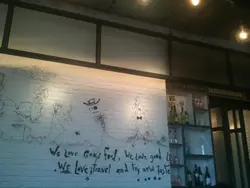 We Love Good Food, We Love good
We Love Travel and try new taste